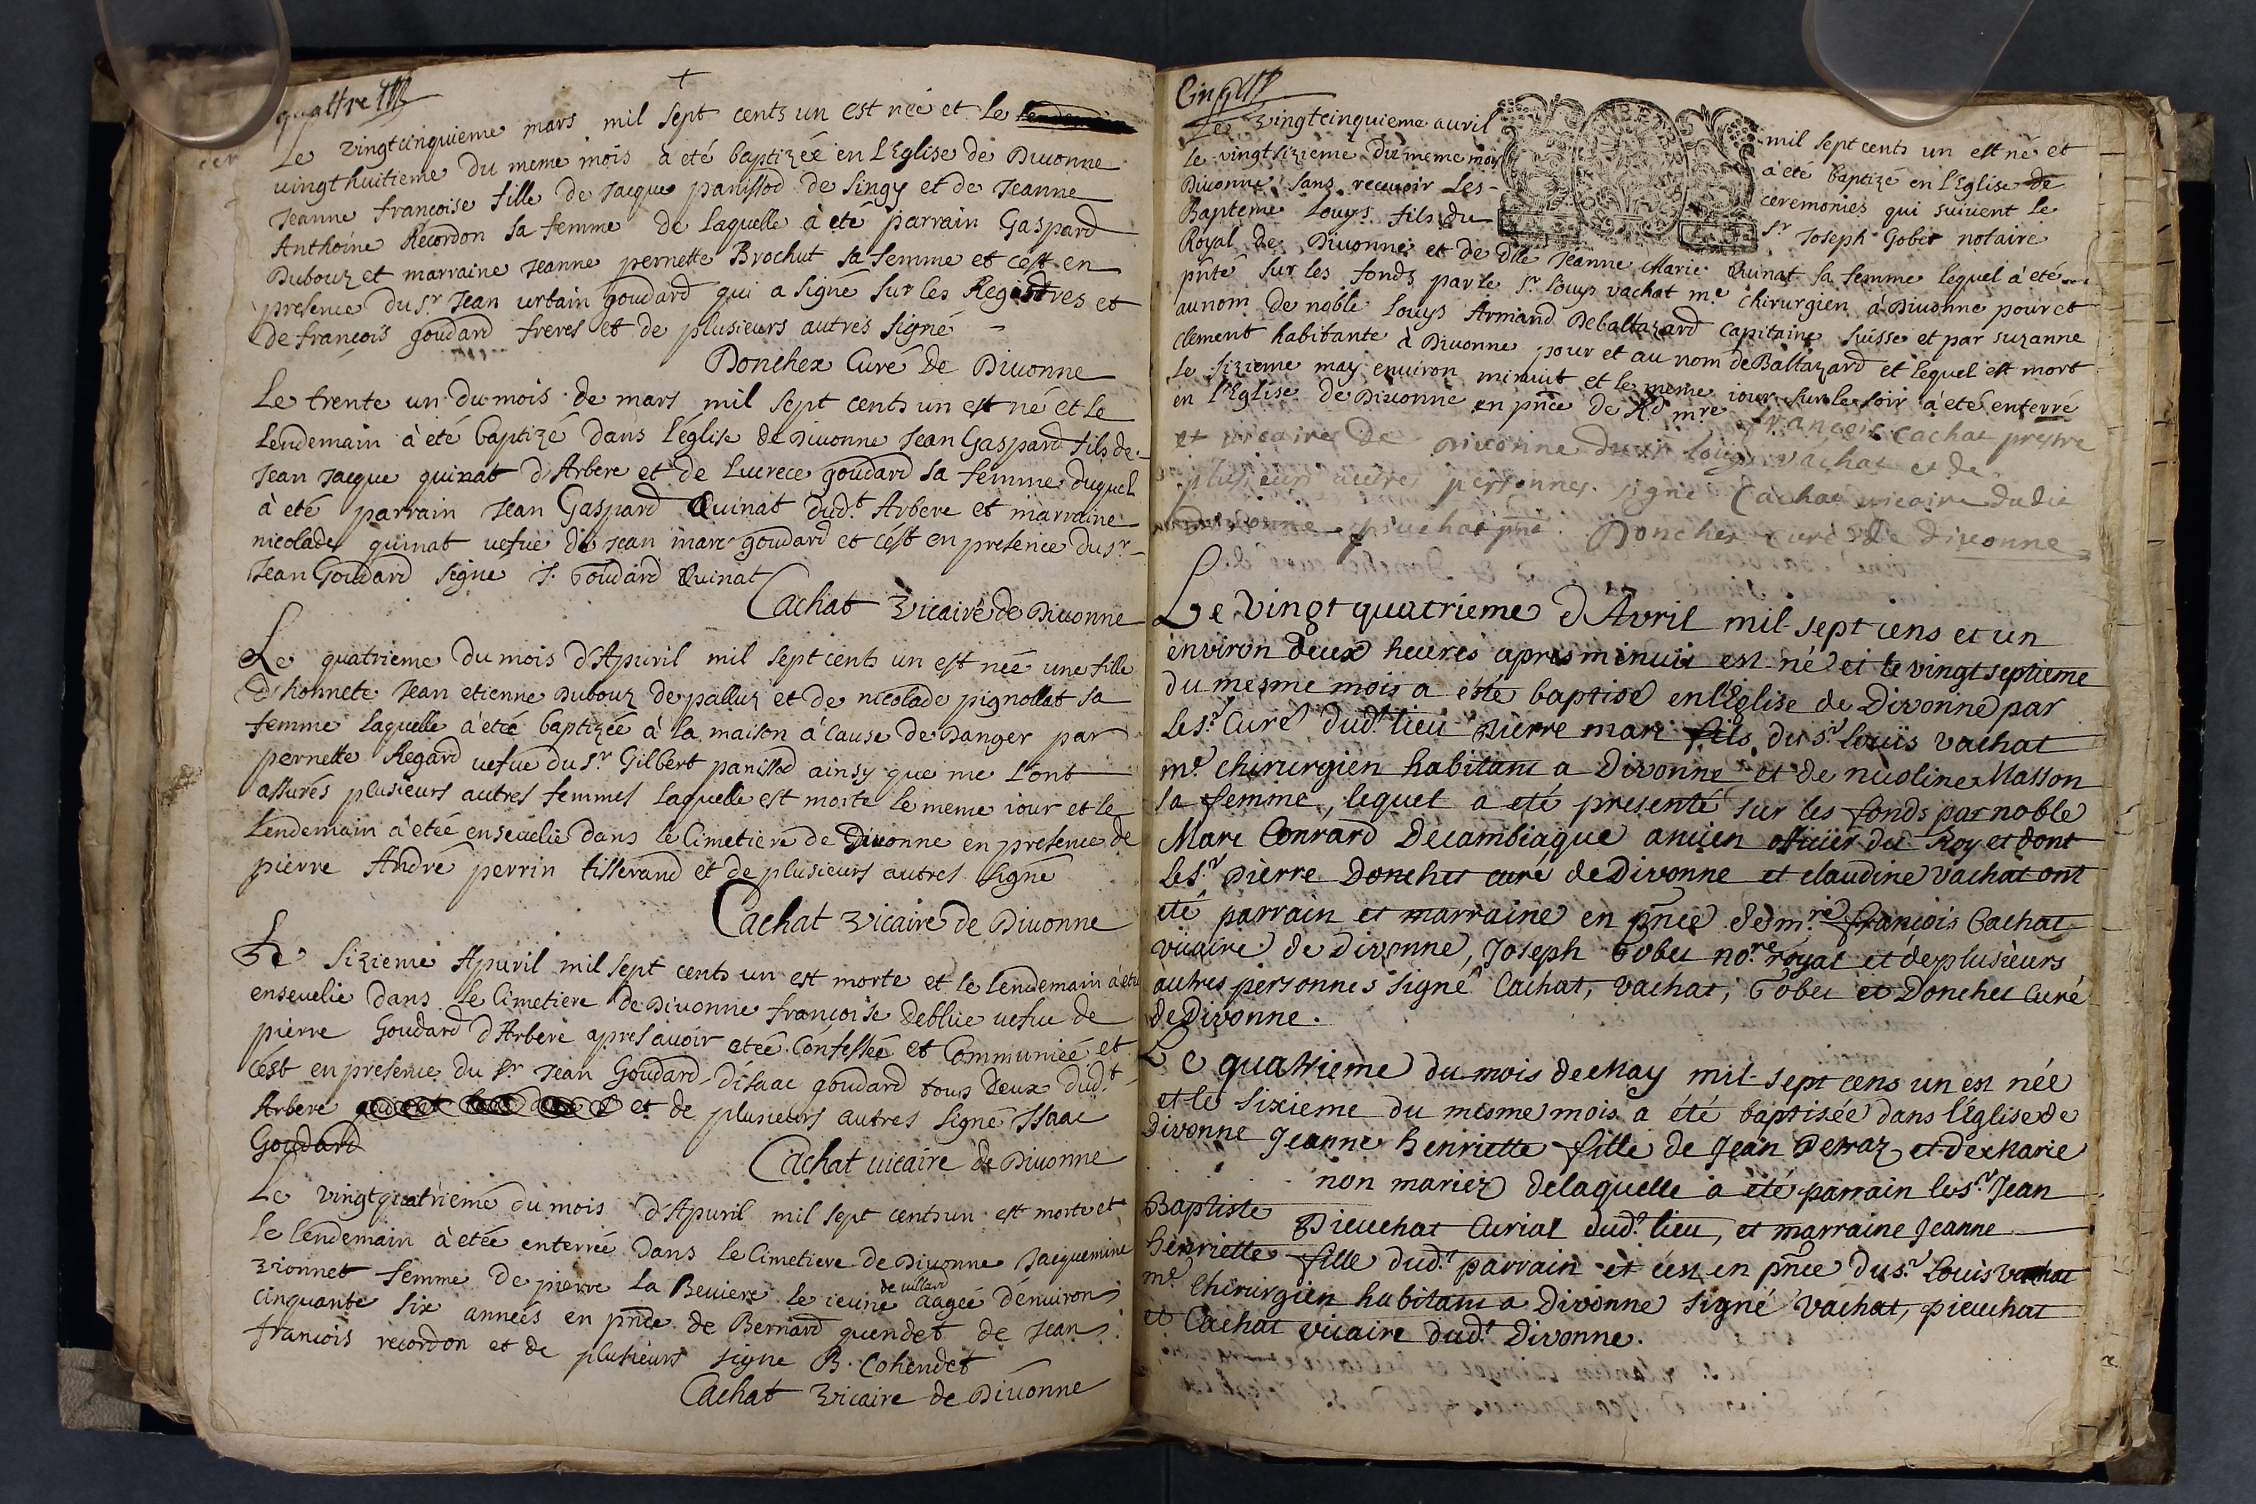 quattre
+
Le vingtcinquieme mars mil sept cents un est née et le
vingt huitieme du meme mois à eté baptizée en L'Eglise de Diuonne
Jeanne françoise fille de Jacque panissod de Singy et de Jeanne
Anthoine Recordon sa femme de laquelle à eté parrain Gaspard
Dubouz et marraine Jeanne pernette Brochut sa femme et c'est en
presence du Sr. Jean urbain goudard qui a signé sur les Registres et
de françois goudard freres et de plusieurs autres signé
Donchex Curé De Diuonne
Le trente un du mois de mars mil sept cents un est né et le
lendemain à eté baptizé dans l'église de Diuonne Jean Gaspard fils de
Jean Jacque quinat d'Arbere et de Lucrece goudard sa femme duquel
à eté parrain Jean Gaspard Quinat dud.t Arbere et marraine
nicolade quinat uefue de Jean marc goudard et c'est en presence du Sr.
Jean Goudard signe J. Goudard Quinat
Cachat vicaire de Diuonne
Le quatrieme du mois d'Apuril mil sept cents un est née une fille
d'honnete Jean etienne Dubouz de palluz et de nicolade pignollat sa
femme laquelle a eté baptizée à la maison à cause de Danger par
pernette Regard uefue du Sr. Gilbert panissod ainsy que me l'ont
assurés plusieurs autres femmes laquelle est morte le meme iour et le
lendemain à eteé enseuelie dans le Cimetiere de Diuonne en presence de
pierre André perrin tisserand et de plusieurs autres signé
Cachat vicaire de Diuonne
Le sizieme Apuril mil sept cents un est morte et le lendemain à eté
enseuelie dans le Cimetiere de Diuonne françoise Deblüe uefue de
pierre Goudard d'Arbere apres auoir eteé Confessée et Communiée et
c'est en presence du Sr. Jean Goudard d'isaac goudard tous Deux dud.t
Arbere et de plusieurs autres signé Issaac
Goudard
Cachat uicaire de Diuonne
Le vingtquatrieme du mois d'Apuril mil sept cents un est morte et
le lendemain à eteé enterrée dans le Cimetiere de Diuonne Jacquemine
vionnet femme de pierre La Beuiere le ieune de villard aageé d'enuiron
cinquante six années en pnce de Bernard quendet de Jean
francois recordon et de plusieurs signe B. Cohendet
Cachat vicaire de Diuonne
Cinq
Le vingtcinquieme auril mil sept cents un est né et
le vingt sizieme du meme mois à été baptizé en l'Eglise de
Diuonne sans receuoir Les ceremonies qui suiuent le
Bapteme Louys fils du Sr. Joseph Gobet notaire
Royal de Diuonne et de dlle Jeanne Marie Quinat sa femme lequel à eté
pnté sur les fonds par le Sr. Louys vachat me. chirurgien à Diuonne pour et
au nom de noble Louys Armand Debaltazard capitaine suisse et par suzanne
clement habitante à Diuonne pour et au nom de Baltazard et lequel est mort
le sizieme may enuiron minuit et le meme iour sur le soir à eté enterré
en l'Eglise de Diuonne en pnce de Rd mre françois Cachat prestre
et vicaire de Diuonne du Sr. Louys vachat et de
plusieurs autres personnes signé Cachat vicaire dudit
Diuonne piuchat pnt. Donchex curé de diuonne
Le vingt quatrieme d'Avril mil sept cens et un
environ deux heures apres minuit est né et le vingt septieme
du mesme mois a été baptisé en l'Eglise de Divonne par
le Sr. Curé dud.t lieu Pierre marc fils du Sr. Louis vachat
me. chirurgien habitant a Divonne et de nicoline Masson
sa femme, lequel a eté presenté sur les fonds par noble
Marc Conrard Decambiaque ancien officier du Roy et dont
le Sr. Pierre Donchet curé de Divonne et claudine vachat ont
eté parrain et marraine en pnce de mre. françois Cachat
vicaire de Divonne, Joseph Gobet nore. royal et de plusieurs
autres personnes signé Cachat, vachat, Gobet et Donchet Curé
de Divonne.
Le quatrieme du mois de May mil sept cens un est née
et le sixieme du mesme mois a été baptisée dans l'Eglise de
Divonne Jeanne henriette fille de Jean Deraz et de Marie
non mariez de laquelle a été parrain le Sr. Jean
Baptiste Pieuchat Curial dud.t lieu, et marraine Jeanne
henriette fille dud.t parrain et c'est en pnce du Sr. Louis vachat
me. chirurgien habitant a Divonne signé vachat, pieuchat
et Cachat vicaire dud.t Divonne.